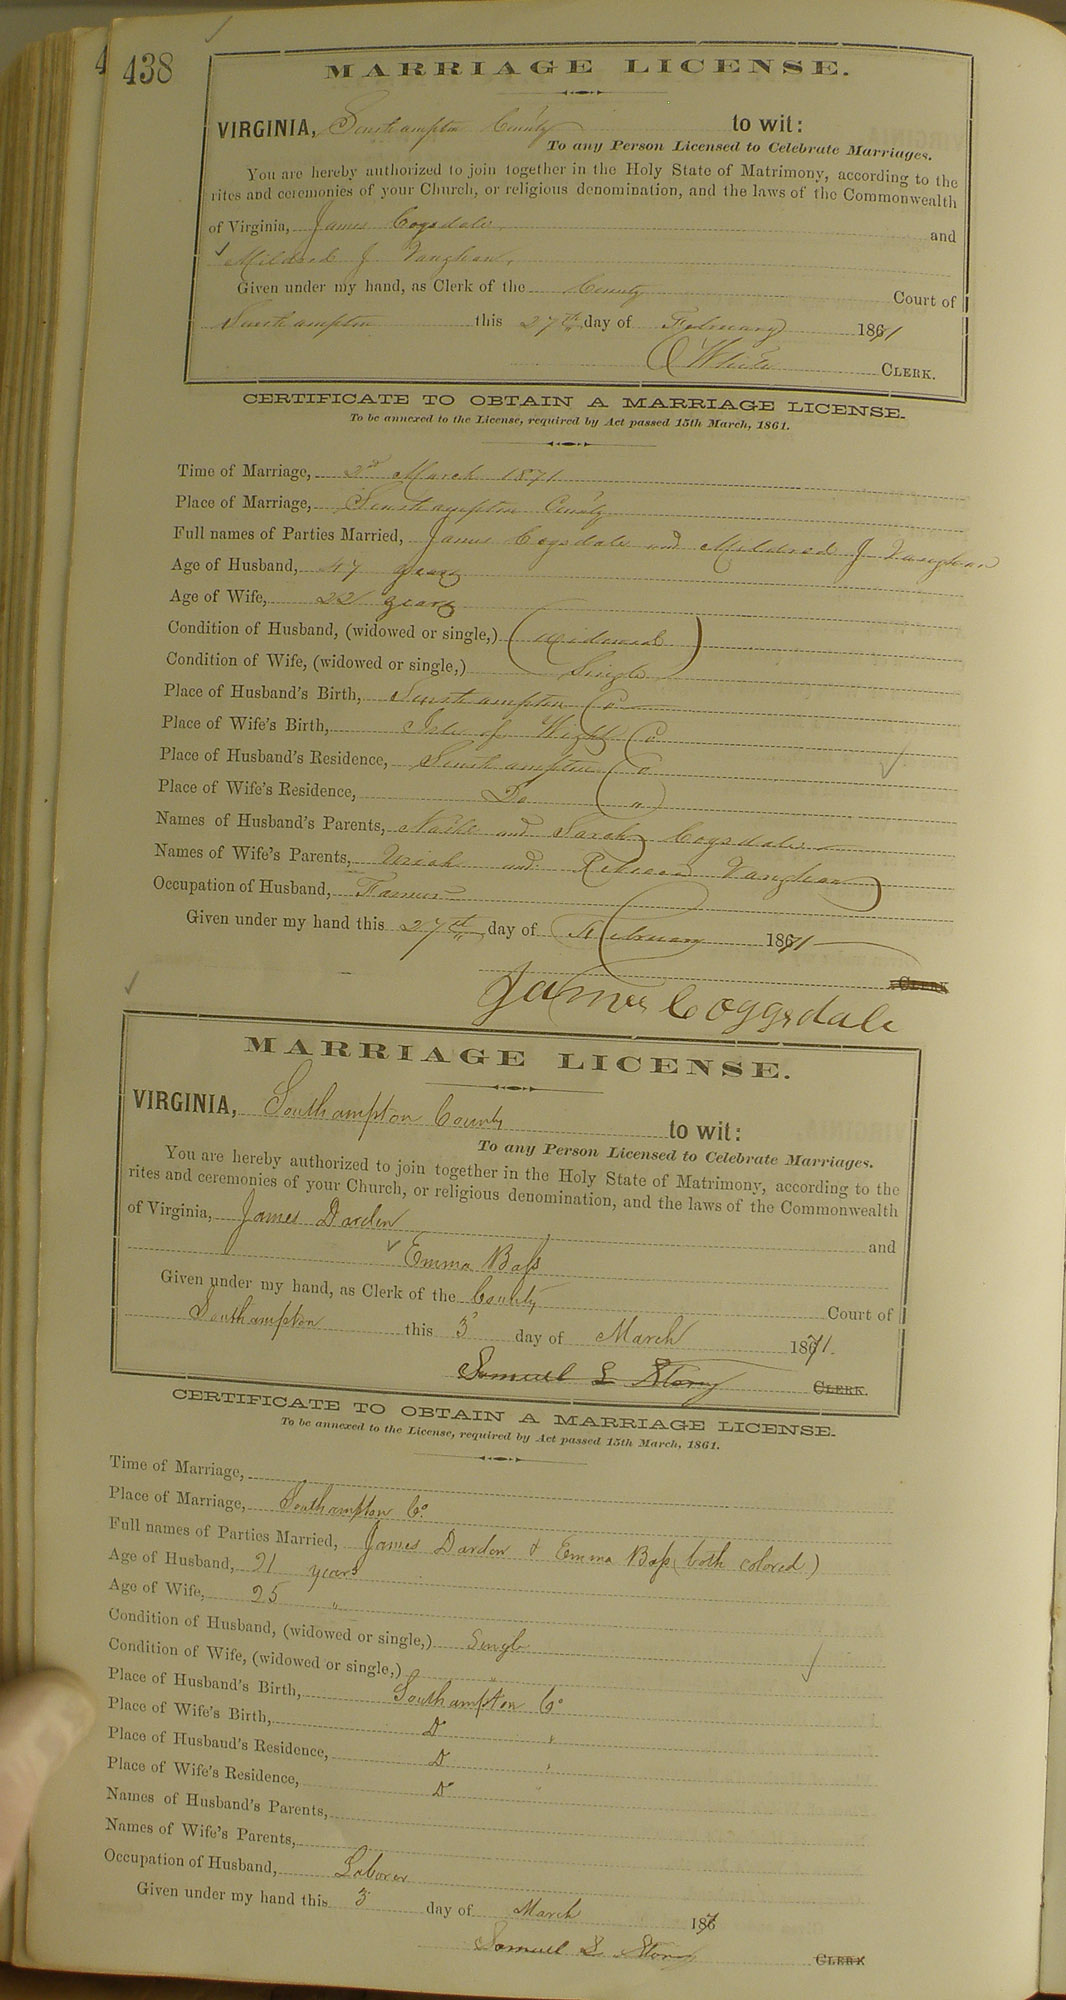 438
MARRIAGE LICENSE.
VIRGINIA, Southampton County to wit:
To any Person Licensed to Celebrate Marriages.
You are hereby authorized to join together in the Holy State of Matrimony, according to the
rites and ceremonies of your Church, or religious denomination, and the laws of the Commonwealth
of Virginia, James Cogsdale, and
Mildred J Vaughan,
Given under my hand, as Clerk of the County Court of
Southampton this 27th day of February 1871
White CLERK.
CERTIFICATE TO OBTAIN A MARRIAGE LICENSE.
To be annexed to the License, required by Act passed 15th March, 1861.
Time of Marriage, 2nd March 1871
Place of Marriage, Southampton County
Full names of Parties Married, James Cogsdale and Mildred J Vaughan
Age of Husband, 47 years
Age of Wife, 22 years
Condition of Husband, (widowed or single,) Widowed
Condition of Wife, (widowed or single,) Single
Place of Husband's Birth, Southampton Co
Place of Wife's Birth, Isle of Wight Co
Place of Husband's Residence, Southampton Co
Place of Wife's Residence, Do "
Names of Husband's Parents, and Sarah Cogsdale
Names of Wife's Parents, Uriah and Rebecca Vaughan
Occupation of Husband, Farmer
Given under my hand this 27th day of February 1871
CLERK
James Coggsdale
MARRIAGE LICENSE.
VIRGINIA, Southampton County to wit:
To any Person Licensed to Celebrate Marriages.
You are hereby authorized to join together in the Holy State of Matrimony, according to the
rites and ceremonies of your Church, or religious denomination, and the laws of the Commonwealth
of Virginia, James Darden and
Emma Bass
Given under my hand, as Clerk of the County Court of
Southampton this 3 day of March 1871.
Samuel L Story CLERK.
CERTIFICATE TO OBTAIN A MARRIAGE LICENSE.
To be annexed to the License, required by Act passed 15th March, 1861.
Time of Marriage,
Place of Marriage, Southampton Co.
Full names of Parties Married, James Darden & Emma Bass (both colored)
Age of Husband, 21 years
Age of Wife, 25 "
Condition of Husband, (widowed or single,) Single
Condition of Wife, (widowed or single,) "
Place of Husband's Birth, Southampton Co
Place of Wife's Birth, Do "
Place of Husband's Residence, Do "
Place of Wife's Residence, Do
Names of Husband's Parents,
Names of Wife's Parents,
Occupation of Husband, Laborer
Given under my hand this 3 day of March 187
Samuel L Story CLERK